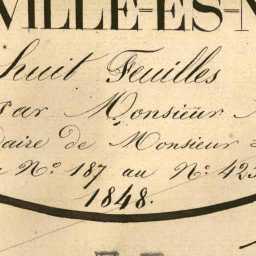 VILLE-ÈS-N
huit Feuilles
Par Monsieur
daire de Monsieur
N° 187 au N° 423
1848.